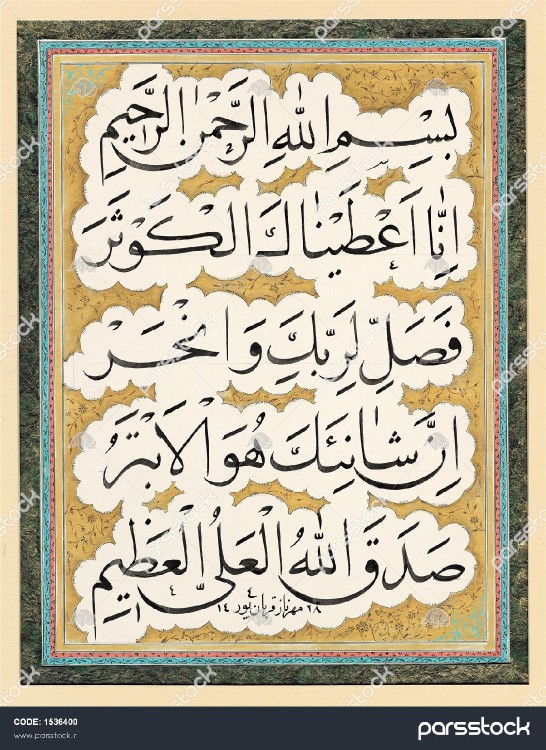 بِسْمِ اللهِ الرَّحْمٰنِ الرَّحِیمِ
اِنّٰا اَعْطَیْنٰاكَ الْکَوْثَرَ
فَصَلِّ لِرَبِّكَ وَ انْحَرْ
اِنَّ شٰانِئَكَ هُوَ الْاَبْتَرُ
صَدَقَ اللهُ الْعَلیُّ الْعَظیِم
مهرناز قربان‌پور
parsstock
CODE: 1536400
www.parsstock.ir
parsstock